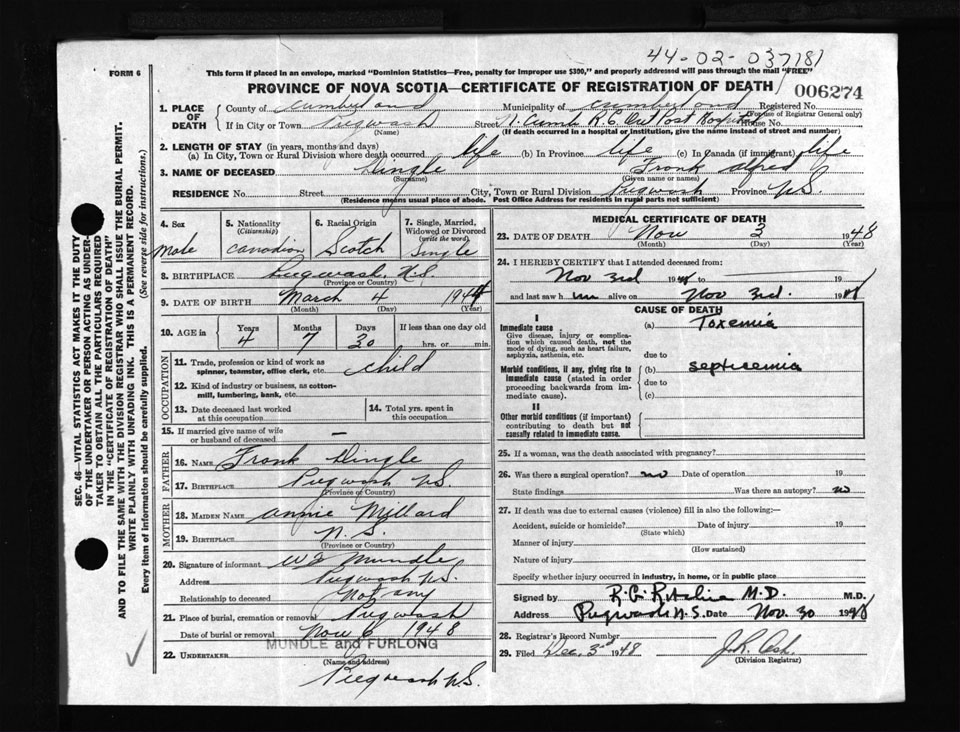 44-02-037181
FORM 6
This form if placed in an envelope, marked "Dominion Statistics—Free, penalty for improper use $300," and properly addressed will pass through the mail "FREE"
PROVINCE OF NOVA SCOTIA—CERTIFICATE OF REGISTRATION OF DEATH
006274
1. PLACE OF DEATH
County of Cumberland Municipality of Cumberland Registered No.
(For use of Registrar General only)
If in City or Town Pugwash Street N. Cumb R.C. Out Post Hospital House No.
(Name) (If death occurred in a hospital or institution, give the name instead of street and number)
2. LENGTH OF STAY (in years, months and days)
(a) In City, Town or Rural Division where death occurred life (b) In Province life (c) In Canada (if immigrant) life
3. NAME OF DECEASED Dingle Frank Alfred
(Surname) (Given name or names)
RESIDENCE No. Street City, Town or Rural Division Pugwash Province N.S.
(Residence means usual place of abode. Post Office Address for residents in rural parts not sufficient)
4. Sex
Male
5. Nationality
(Citizenship)
Canadian
6. Racial Origin
Scotch
7. Single, Married, Widowed or Divorced
(write the word)
Single
8. BIRTHPLACE Pugwash, N.S.
(Province or Country)
9. DATE OF BIRTH March 4 1944
(Month) (Day) (Year)
10. AGE in
Years Months Days If less than one day old
4 7 30 hrs. or min.
OCCUPATION
11. Trade, profession or kind of work as spinner, teamster, office clerk, etc. child
12. Kind of industry or business, as cotton-mill, lumbering, bank, etc.
13. Date deceased last worked at this occupation
14. Total yrs. spent in this occupation
15. If married give name of wife or husband of deceased —
FATHER
16. NAME Frank Dingle
17. BIRTHPLACE Pugwash N.S.
(Province or Country)
MOTHER
18. MAIDEN NAME Annie Myllard
19. BIRTHPLACE N.S.
(Province or Country)
20. Signature of informant W F Mundle
Address Pugwash N.S.
Relationship to deceased Not any
21. Place of burial, cremation or removal Pugwash
Date of burial or removal Nov 6 1948
MUNDLE and FURLONG
22. UNDERTAKER
(Name and address)
Pugwash N.S.
MEDICAL CERTIFICATE OF DEATH
23. DATE OF DEATH Nov 3 1948
(Month) (Day) (Year)
24. I HEREBY CERTIFY that I attended deceased from:
Nov 3rd 1948 to 19
and last saw h im alive on Nov 3rd. 1948
CAUSE OF DEATH
I
Immediate cause
Give disease, injury or complication which caused death, not the mode of dying, such as heart failure, asphyxia, asthenia, etc.
(a) Toxemia
due to
Morbid conditions, if any, giving rise to immediate cause (stated in order proceeding backwards from immediate cause).
(b) septicemia
due to
(c)
II
Other morbid conditions (if important) contributing to death but not causally related to immediate cause.
25. If a woman, was the death associated with pregnancy?
26. Was there a surgical operation? no Date of operation 19
State findings Was there an autopsy? no
27. If death was due to external causes (violence) fill in also the following:—
Accident, suicide or homicide? Date of injury 19
(State which)
Manner of injury
(How sustained)
Nature of injury
Specify whether injury occurred in industry, in home, or in public place
Signed by R.G. Ritchie M.D. M.D.
Address Pugwash N.S. Date Nov. 30 1948
28. Registrar's Record Number
29. Filed Dec. 3rd 1948
(Division Registrar)
SEC. 46—VITAL STATISTICS ACT MAKES IT THE DUTY
OF THE UNDERTAKER OR PERSON ACTING AS UNDERTAKER TO OBTAIN ALL THE PARTICULARS REQUIRED
IN THE "CERTIFICATE OF REGISTRATION OF DEATH"
AND TO FILE THE SAME WITH THE DIVISION REGISTRAR WHO SHALL ISSUE THE BURIAL PERMIT.
WRITE PLAINLY WITH UNFADING INK. THIS IS A PERMANENT RECORD.
Every item of information should be carefully supplied. (See reverse side for instructions.)